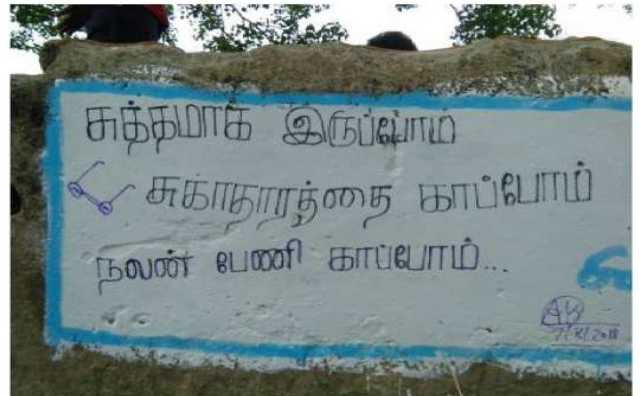 சுத்தமாக இருப்போம்
சுகாதாரத்தை காப்போம்
நலன் பேணி காப்போம்...